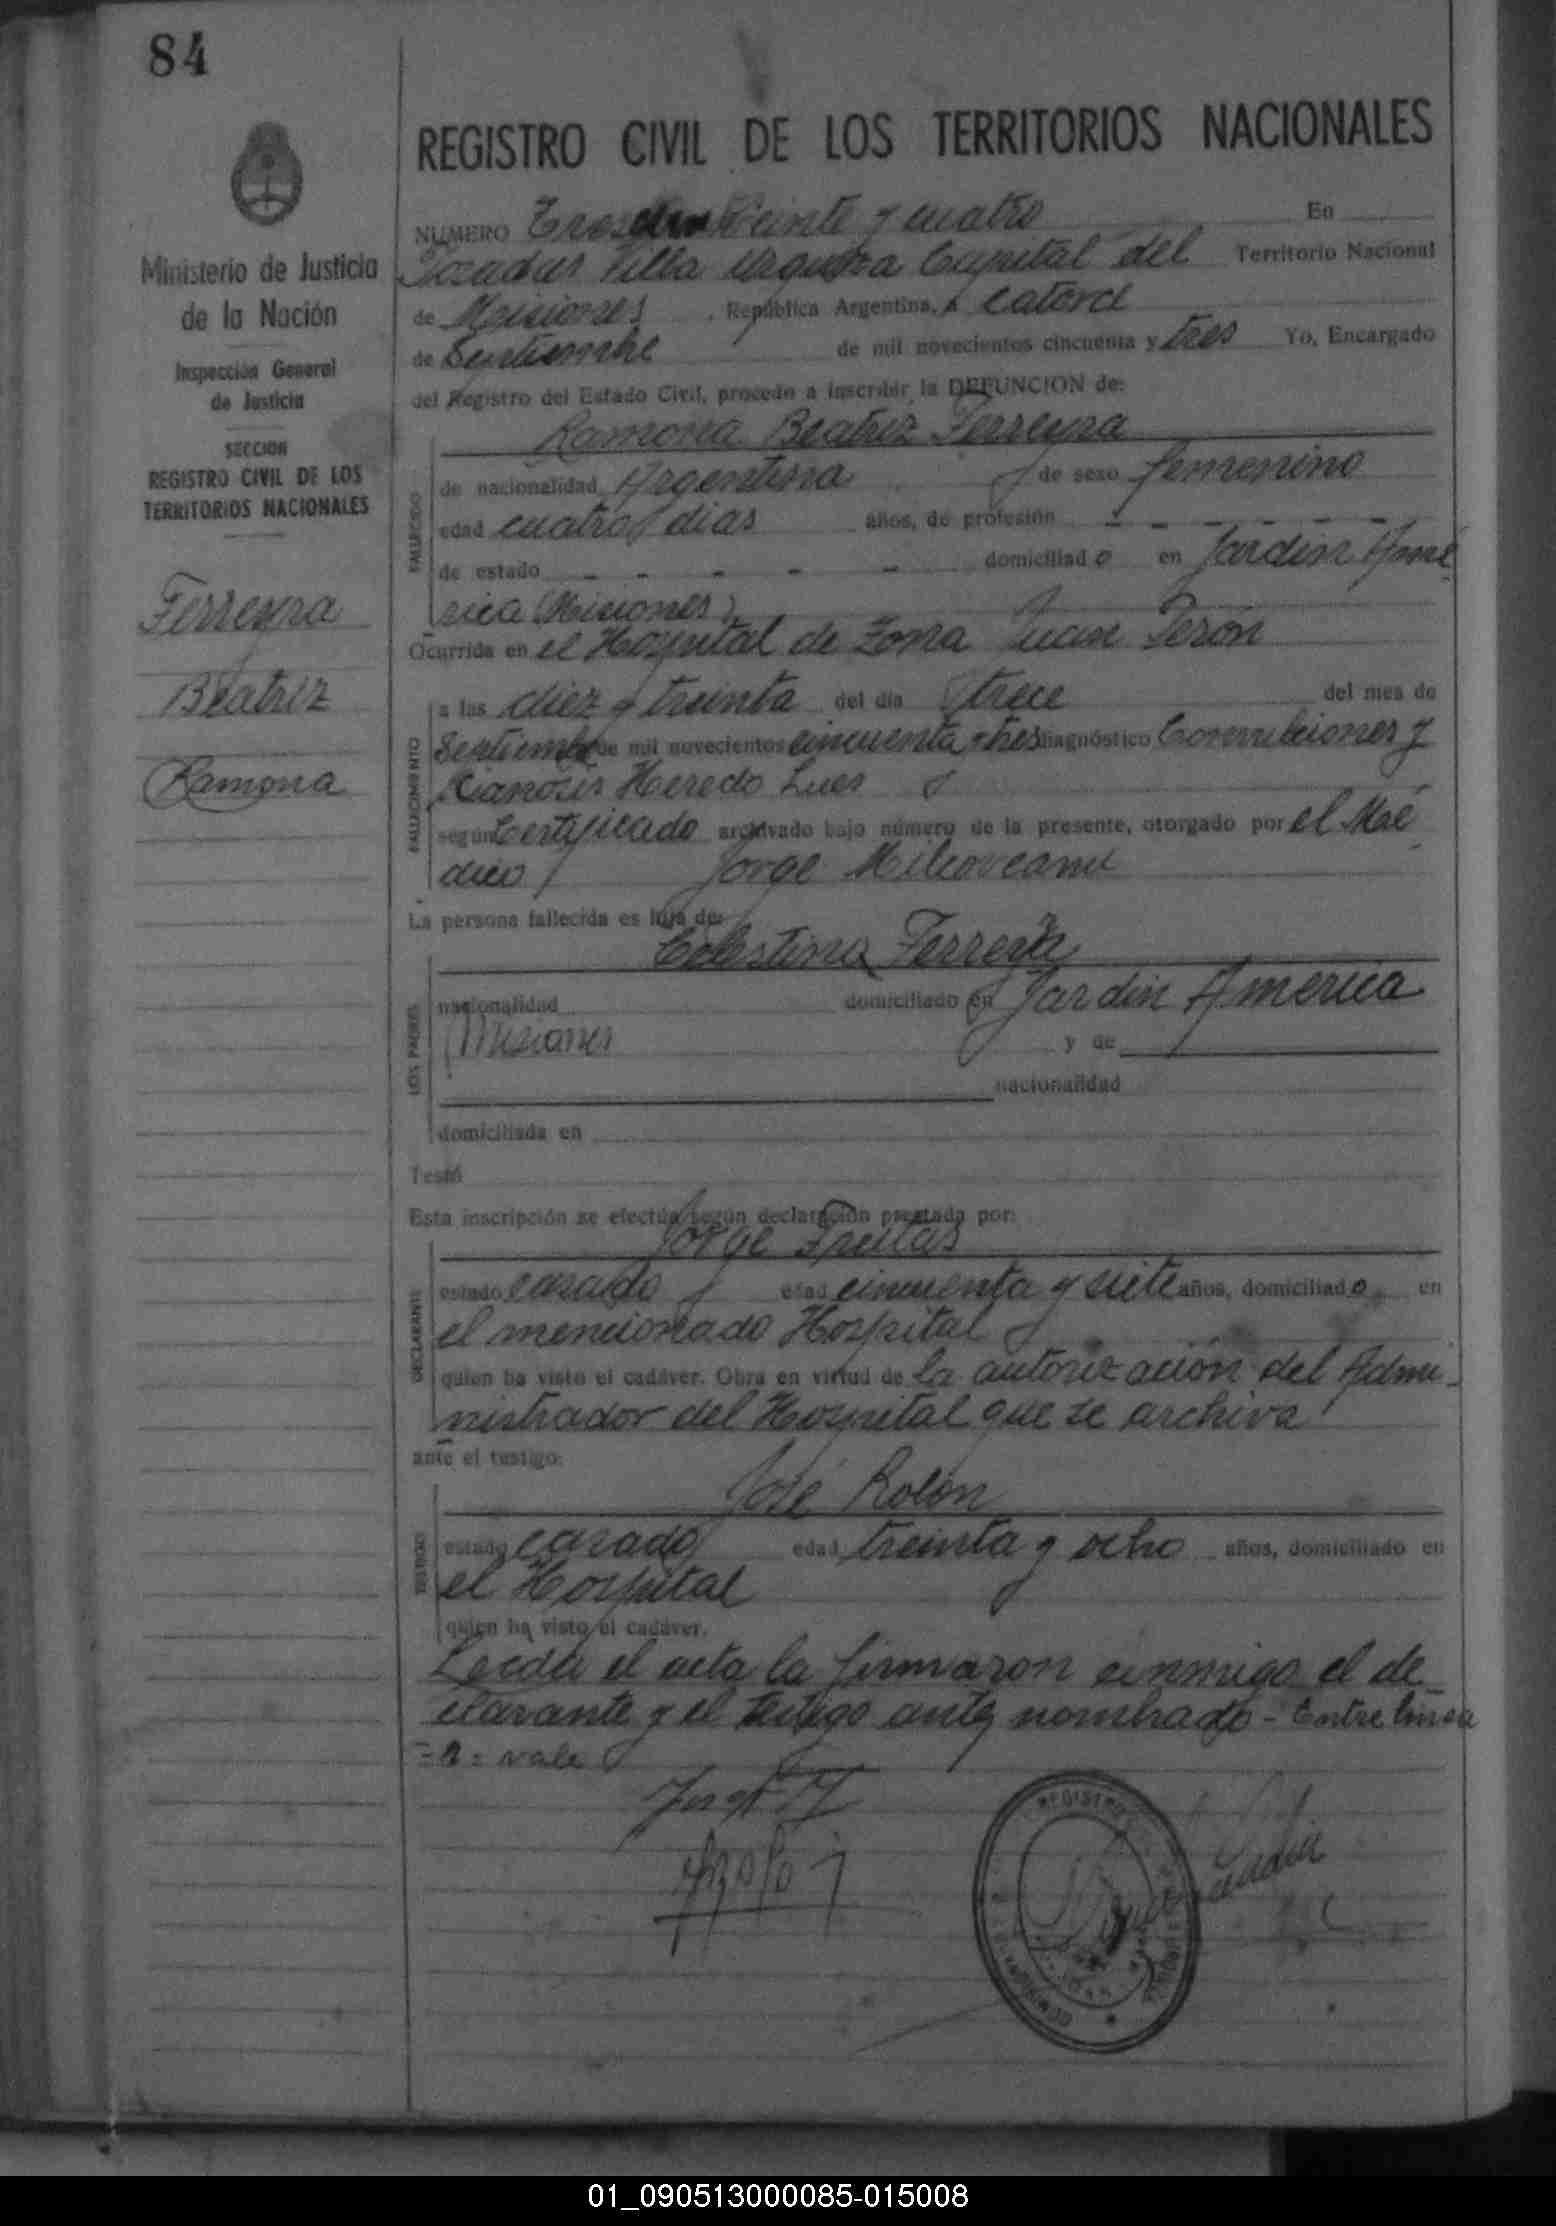 84
REGISTRO CIVIL DE LOS TERRITORIOS NACIONALES
Ministerio de Justicia
de la Nación
Inspección General
de Justicia
SECCION
REGISTRO CIVIL DE LOS
TERRITORIOS NACIONALES
Ferreyra
Beatriz
Ramona
NUMERO Veinte y cuatro En
Posadas Villa Urquiza Capital del Territorio Nacional
de Misiones, República Argentina, a catorce
de Septiembre de mil novecientos cincuenta y tres Yo, Encargado
del Registro del Estado Civil, procedo a inscribir la DEFUNCION de:
Ramona Beatriz Ferreyra
FALLECIDO
de nacionalidad Argentina de sexo femenino
edad cuatro dias años, de profesión - - - - -
de estado - - - - - domiciliado en Jardin Amé
rica (Misiones)
Ocurrida en el Hospital de Zona Juan Perón
FALLECIMIENTO
a las diez y treinta del día trece del mes de
Septiembre de mil novecientos cincuenta y tres diagnóstico Convulciones y
Cianosis Heredo Lues
según Certificado archivado bajo número de la presente, otorgado por el Mé
dico Jorge Milcoveanu
La persona fallecida es hija de:
Celestina Ferreyra
LOS PADRES
nacionalidad domiciliado en Jardin America
Misiones y de
nacionalidad
domiciliada en
Testó
Esta inscripción se efectúa según declaración prestada por:
Jorge Freitas
DECLARANTE
estado casado edad cincuenta y siete años, domiciliado en
el mencionado Hospital
quien ha visto el cadáver. Obra en virtud de la autorización del Admi-
nistrador del Hospital que se archiva
ante el testigo:
José Rolón
TESTIGO
estado casado edad treinta y ocho años, domiciliado en
el Hospital
quien ha visto el cadáver.
Leida el acta la firmaron conmigo el de-
clarante y el testigo ante nombrado - Entre linea
vale
REGISTRO
01_090513000085-015008